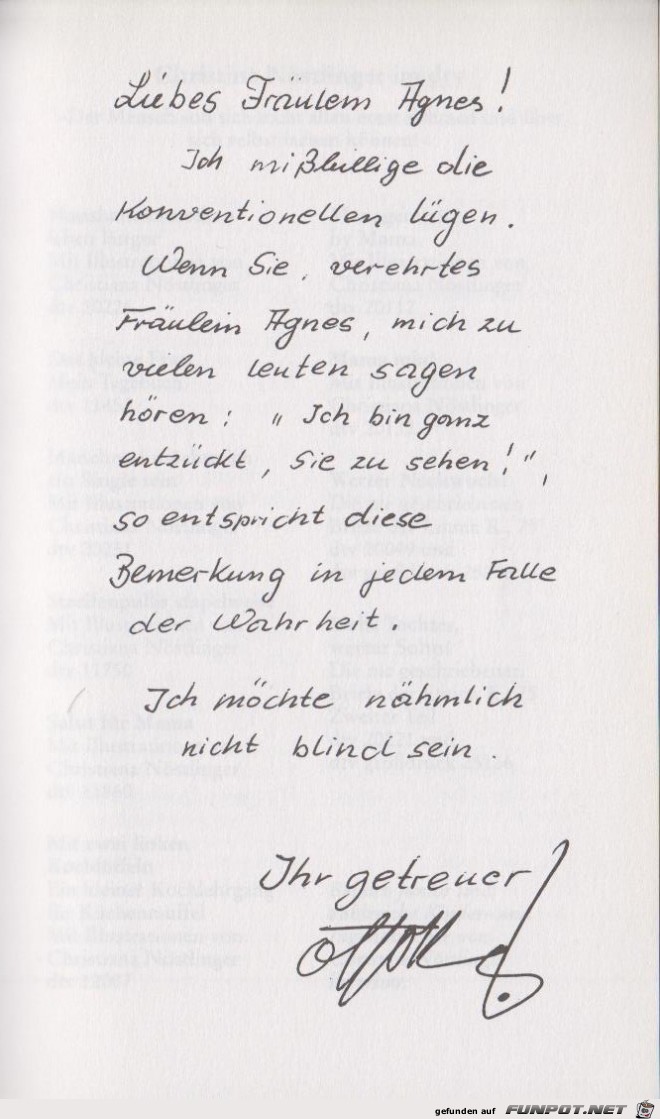 Liebes Fräulein Agnes!
Ich mißbillige die
Konventionellen lügen.
Wenn Sie, verehrtes
Fräulein Agnes, mich zu
vielen leuten sagen
hören: „Ich bin ganz
entzückt, Sie zu sehen!",
so entspricht diese
Bemerkung in jedem Falle
der Wahrheit.
Ich möchte nähmlich
nicht blind sein.
Ihr getreuer
gefunden auf FUNPOT.NET